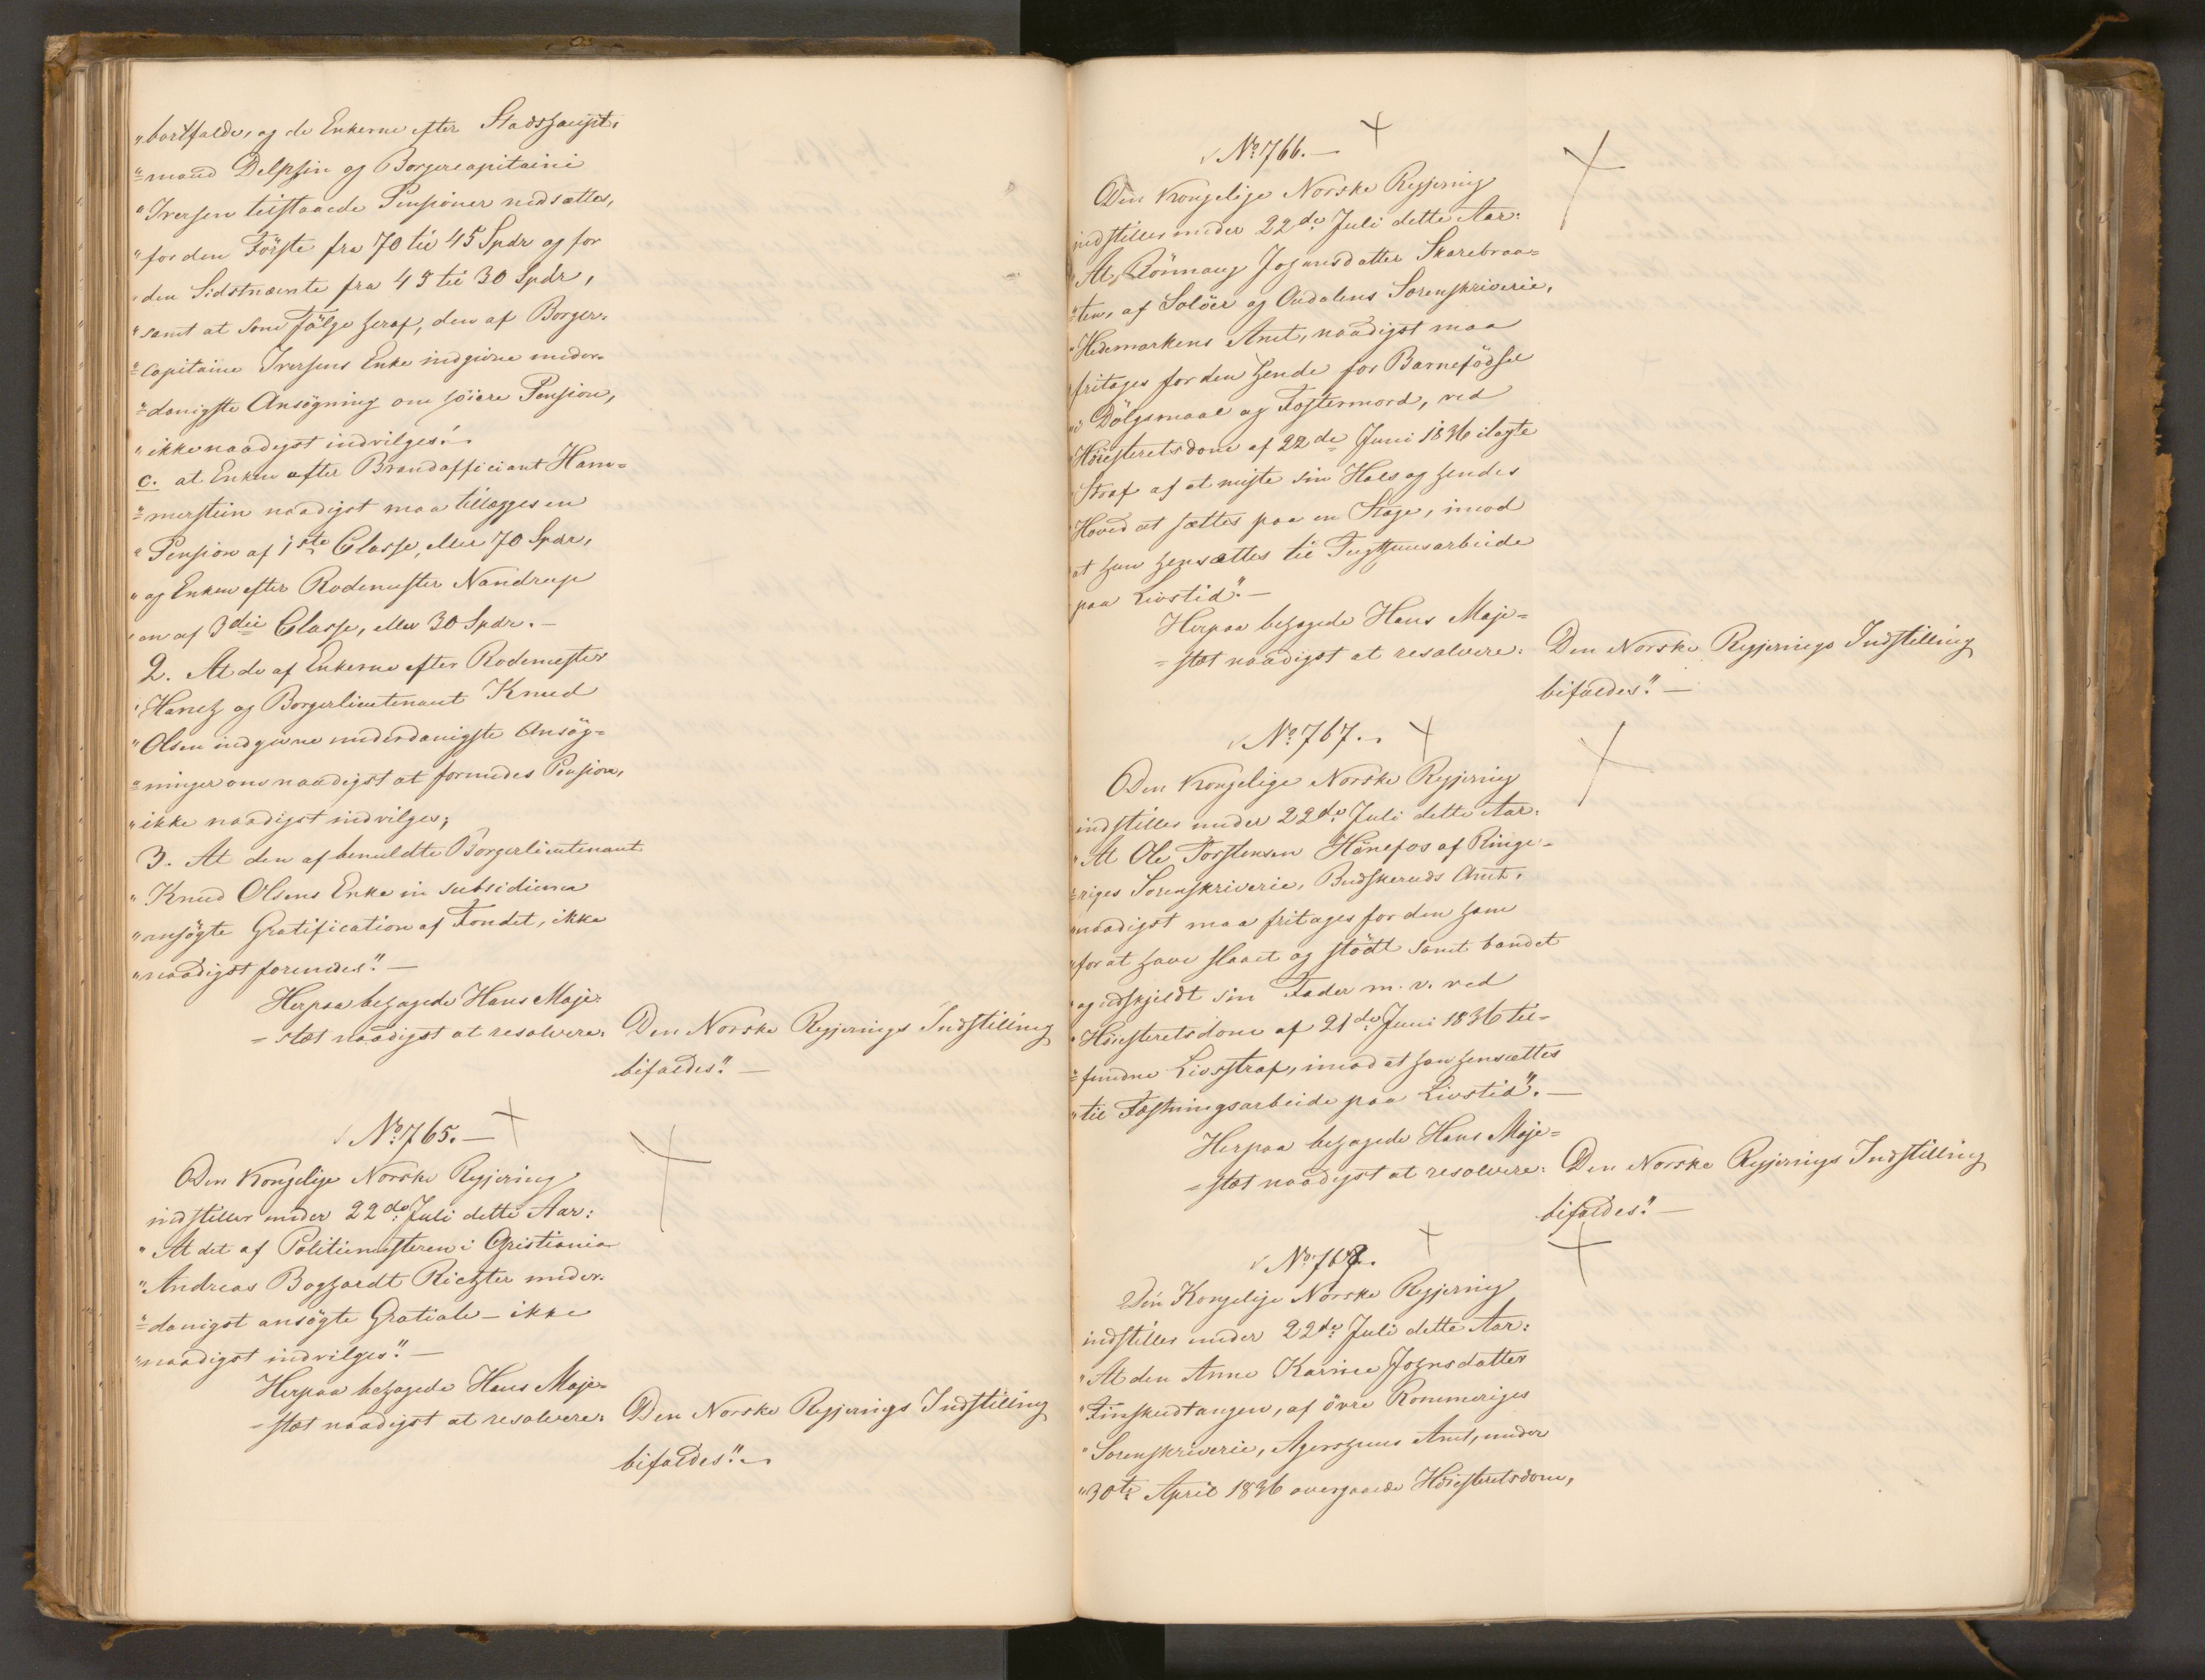 "bortfalde, og de Enkerne efter Stadshaupt-
"=mand Delphin og Borgercapitaine
"Iversen tilstaaede Pensioner nedsættes,
"for den Förste fra 70 til 45 Spdr og for
"den Sidstnævnte fra 45 til 30 Spdr,
"samt at som Fölge heraf, den af Borger-
"=capitaine Iversens Enke indgivne under-
"=danigste Ansögning om höiere Pension,
"ikke naadigst indvilges.-
c. at Enken efter Brandofficiant Ham=
"=merstein naadigst maa tillægges en
"Pension af 1ste Classe, eller 70 Spdr,
"og Enken efter Rodemester Nandrup
"en af 3die Classe, eller 30 Spdr. —
2. At de af Enkerne efter Rodemester
"Hancz og Borgerlieutenant Knud
"Olsen indgivne underdanigste Ansög=
"=ninger om naadigst at forundes Pension,
"ikke naadigst indvilges;
3. At den af bemeldte Borgerlieutenant
"Knud Olsens Enke in subsidium
"ansögte Gratification af Fondet, ikke
"naadigst forundes". —
Herpaa behagede Hans Maje-
=stæt naadigst at resolvere: Den Norske Regjerings Indstilling
bifaldes". —
No 765. —
Den Kongelige Norske Regjering
indstiller under 22de Juli dette Aar:
"At det af Politiemesteren i Christiania
"Andreas Boghardt Richter under-
"=danigst ansögte Gratiale – ikke
"naadigst indvilges". —
Herpaa behagede Hans Maje-
=stæt naadigst at resolvere: Den Norske Regjerings Indstilling
bifaldes". —
No 766. —
Den Kongelige Norske Regjering
indstiller under 22de Juli dette Aar:
"At Rönnaug Johnsdatter Skarebraa=
"=ten, af Solöer og Oudalens Sorenskriverie,
"Hedemarkens Amt, naadigst maa
fritages for den hende for Barnefödsel
"i Dölgsmaal og Fostermord, ved
"Höiesteretsdom af 22de Juni 1836 ilagte
"Straf af at miste sin Hals og hendes
"Hoved at sættes paa en Stage, imod
at hun hensættes til Tugthuusarbeide
paa Livstid". —
Herpaa behagede Hans Maje=
=stæt naadigst at resolvere: Den Norske Regjerings Indstilling
bifaldes". —
No 767. -
Den Kongelige Norske Regjering
indstiller under 22de Juli dette Aar:
"At Ole Torstensen Hönefos af Ringe=
"=riges Sorenskriverie, Budskeruds Amt,
"naadigst maa fritages for den ham
"for at have slaaet og stödt samt bandet
"og udskjeldt sin Fader m. v. ved
"Höiesteretsdom af 21de Juni 1836 til=
"=fundne Livsstraf, imod at han hensættes
"til Fæstningsarbeide paa Livstid". —
Herpaa behagede Hans Maje=
=stæt naadigst at resolvere: Den Norske Regjerings Indstilling
bifaldes". —
No 768.
Den Kongelige Norske Regjering
indstiller under 22de Juli dette Aar:
"At den Anne Karine Johnsdatter
"Finskudtangen, af övre Rommeriges
"Sorenskriverie, Agershuus Amt, under
"30te April 1836 overgaaede Höiesteretsdom,